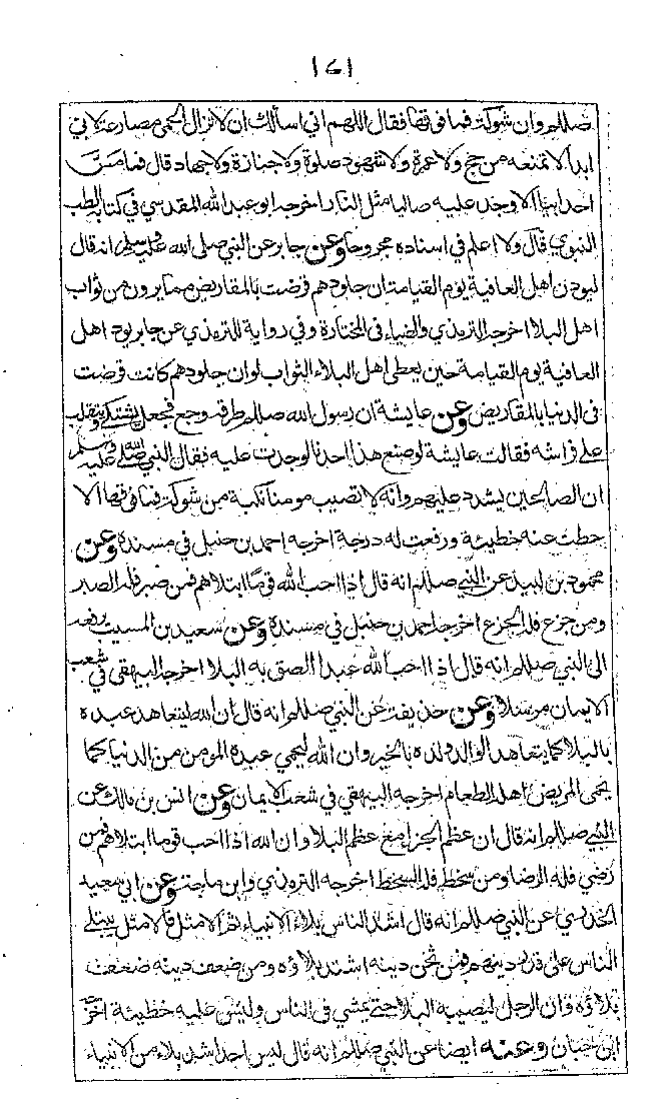 ١٤١
صللم وان شوكة فما فوقها فقال اللهم اني اسألك ان لا تزال الحمى مصارعة لابي
ابدا لا تمنعه من حج ولا عمرة ولا شهود صلوة ولا جنازة ولا جهاد قال فما مس
احد ابيا الا وجد عليه صاليا مثل النار اخرجه ابو عبد الله المقدسي في كتابه الطب
النبوي قال ولا اعلم في اسناده مجروحا وعن جابر عن النبي صلى الله عليه وسلم انه قال
ليودن اهل العافية يوم القيامة ان جلودهم قرضت بالمقاريض مما يرون من ثواب
اهل البلا اخرجه الترمذي والضياء في المختارة وفي رواية للترمذي عن جابر يود اهل
العافية يوم القيامة حين يعطى اهل البلاء الثواب لو ان جلودهم كانت قرضت
في الدنيا بالمقاريض وعن عايشة ان رسول الله صللم طرقه وجع فجعل يشتكي ويتقلب
على فراشه فقالت عايشة لو صنع هذا احدنا لوجدت عليه فقال النبي صلى الله عليه وسلم
ان الصالحين ليشدد عليهم وانه لا تصيب مومنا نكبة من شوكة فما فوقها الا
حطت عنه خطيئة ورفعت له درجة اخرجه احمد بن حنبل في مسنده وعن
محمود بن لبيد عن النبي صللم انه قال اذا احب الله قوما ابتلاهم فمن صبر فله الصبر
ومن جزع فله الجزع اخرجه احمد بن حنبل في مسنده وعن سعيد بن المسيب رفعه
الى النبي صللم انه قال اذا احب الله عبدا الصق به البلا اخرجه البيهقي في شعب
الايمان مرسلا وعن حذيفة عن النبي صللم انه قال ان الله ليتعاهد عبده
بالبلا كما يتعاهد الوالد ولده بالخير وان الله ليحمي عبده المومن من الدنيا كما
يحمى المريض اهله الطعام اخرجه البيهقي في شعب الايمان وعن انس بن مالك عن
النبي صللم انه قال ان عظم الجزا مع عظم البلا وان الله اذا احب قوما ابتلاهم فمن
رضي فله الرضا ومن سخط فله السخط اخرجه الترمذي وابن ماجة وعن ابي سعيد
الخدري عن النبي صللم انه قال اشد الناس بلاء الانبياء ثم الامثل فالامثل يبتلى
الناس على قدر دينهم فمن ثخن دينه اشتد بلاؤه ومن ضعف دينه ضعف
بلاؤه وان الرجل ليصيبه البلا حتى يمشي في الناس وليس عليه خطيئة اخرجه
ابن حبان وعنه ايضا عن النبي صللم انه قال ليس احد اشد بلاء من الانبياء